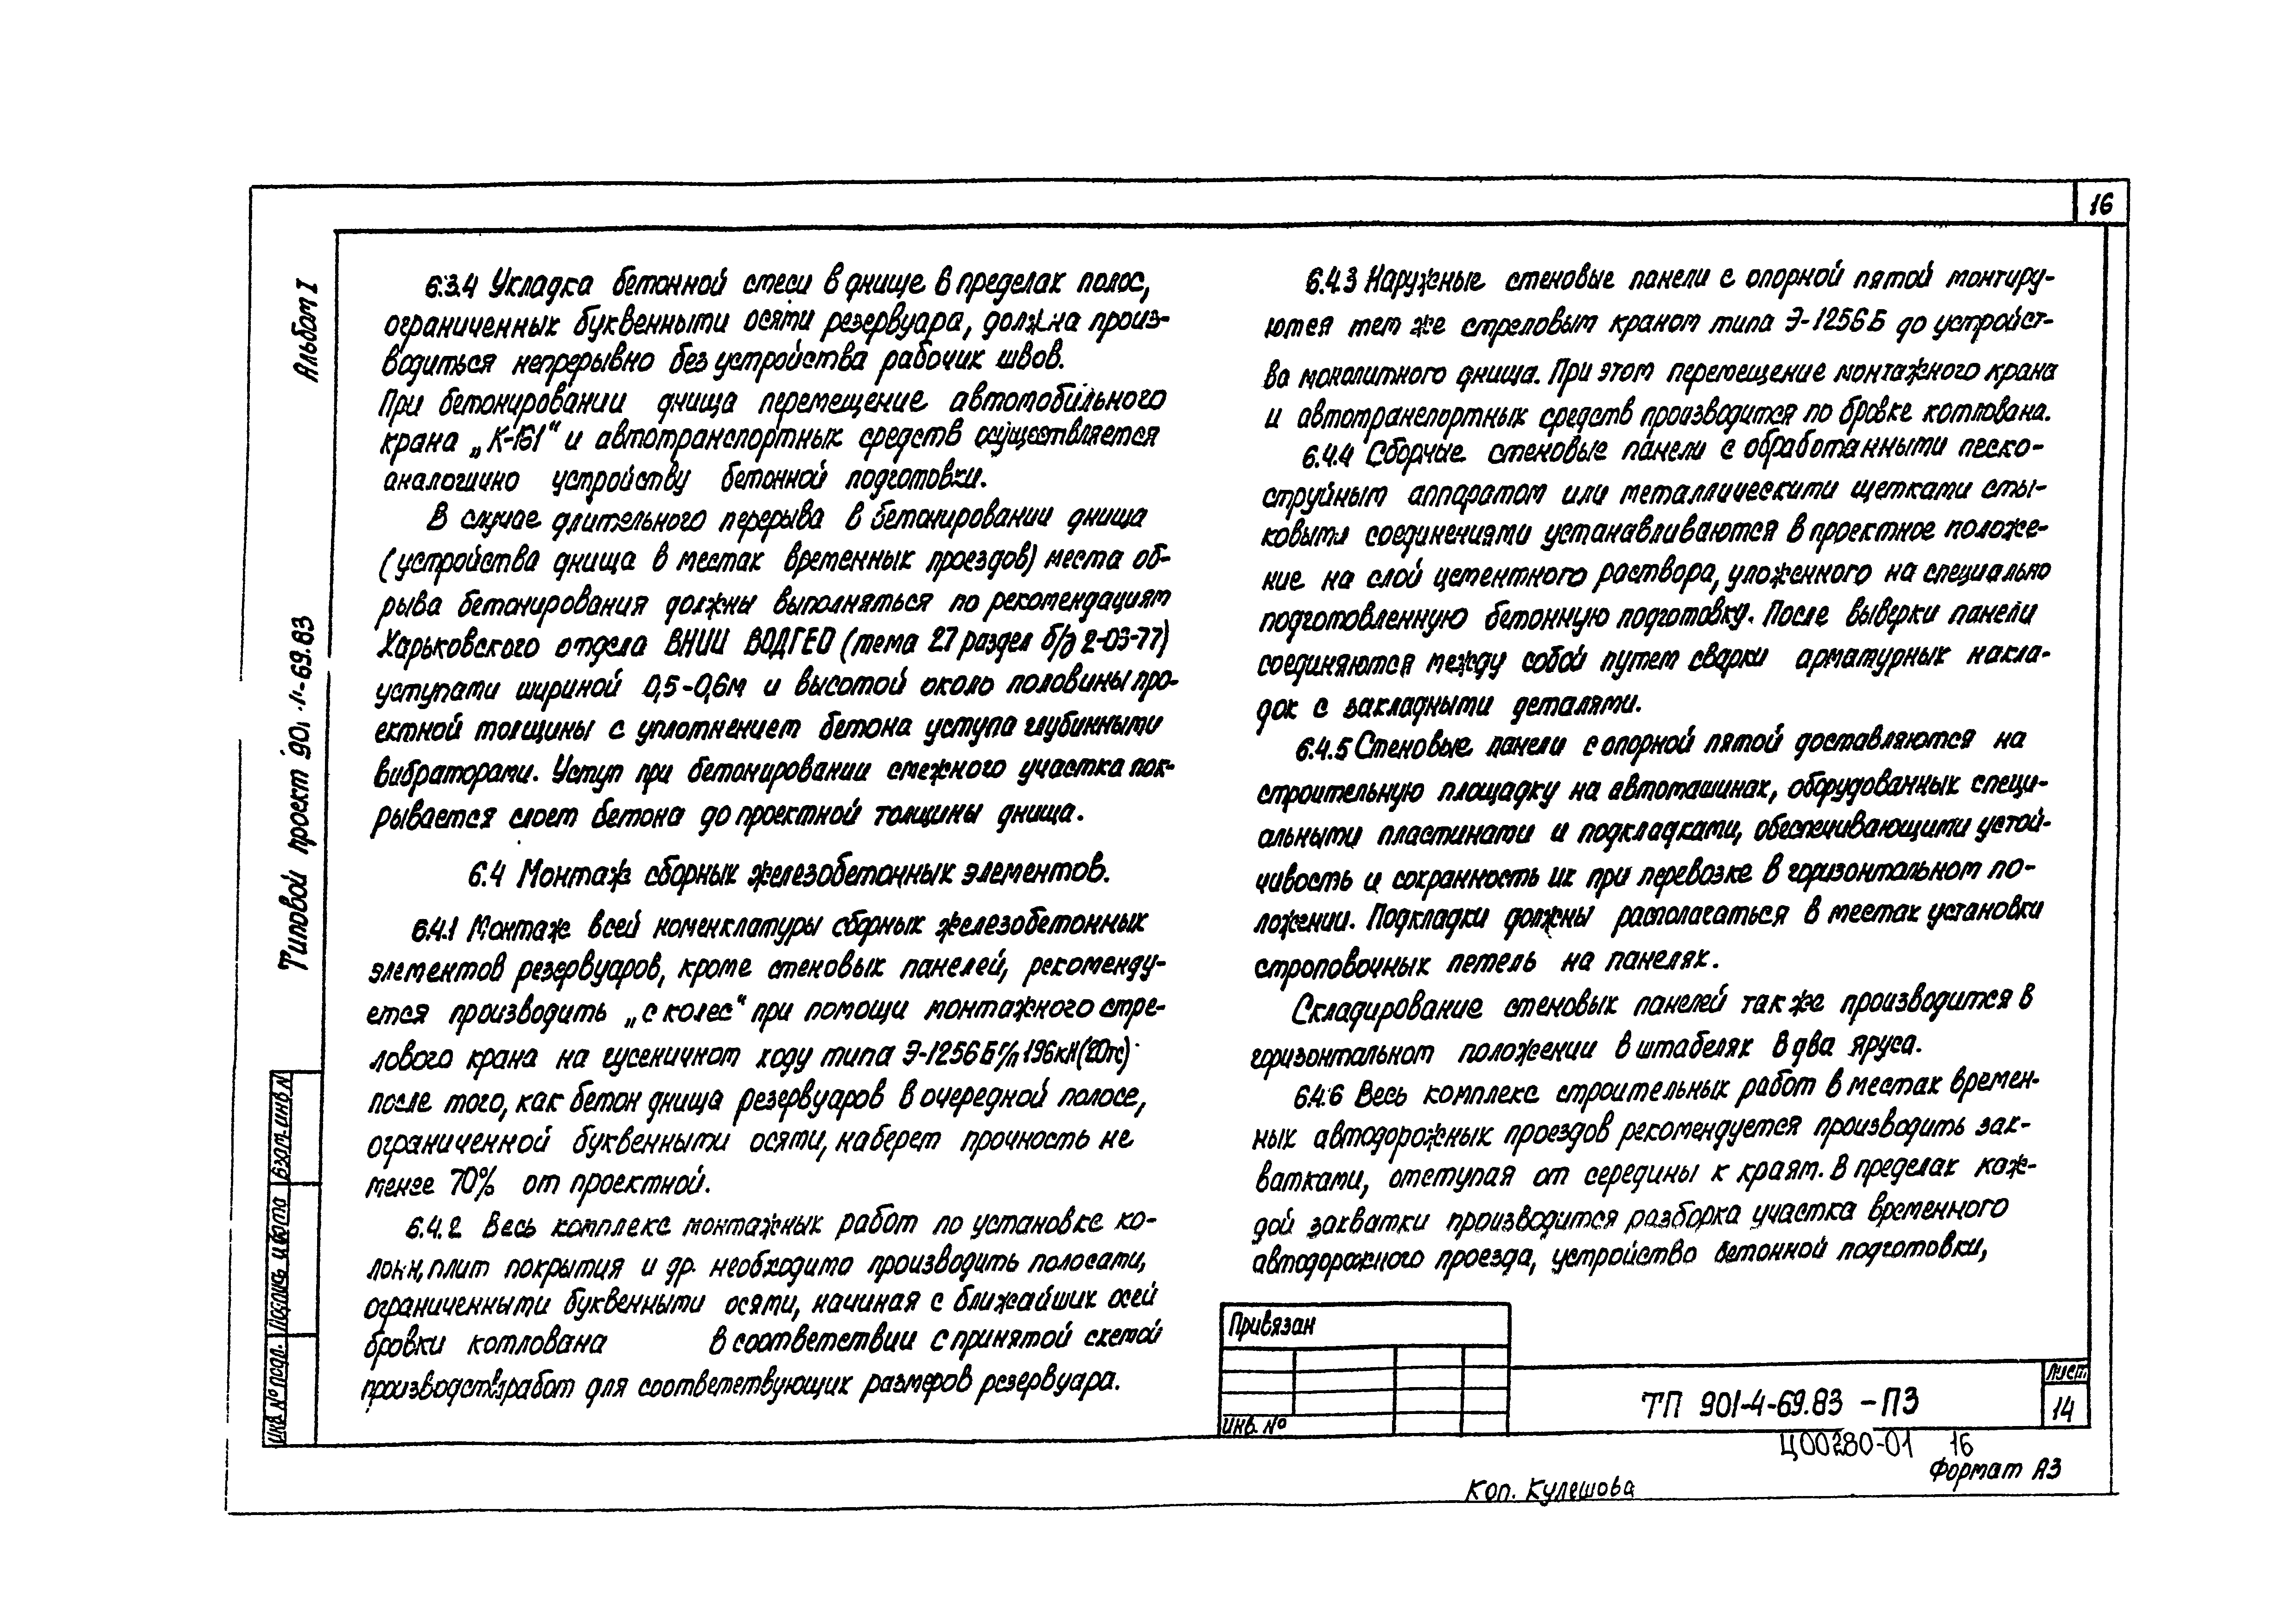 16
Альбом I
Типовой проект 901-4-69.83
6.3.4 Укладка бетонной смеси в днище в пределах полос,
ограниченных буквенными осями резервуара, должна произ-
водиться непрерывно без устройства рабочих швов.
При бетонировании днища перемещение автомобильного
крана „К-161" и автотранспортных средств осуществляется
аналогично устройству бетонной подготовки.
В случае длительного перерыва в бетонировании днища
(устройства днища в местах временных проездов) места об-
рыва бетонирования должны выполняться по рекомендациям
Харьковского отдела ВНИИ ВОДГЕО (тема 27 раздел б/д 2-03-77)
уступами шириной 0,5-0,6м и высотой около половины про-
ектной толщины с уплотнением бетона уступа глубинными
вибраторами. Уступ при бетонировании смежного участка пок-
рывается слоем бетона до проектной толщины днища.
6.4 Монтаж сборных железобетонных элементов.
6.4.1 Монтаж всей номенклатуры сборных железобетонных
элементов резервуаров, кроме стеновых панелей, рекоменду-
ется производить „с колес" при помощи монтажного стре-
лового крана на гусеничном ходу типа Э-1256Б г/п 196кН(20тс)
после того, как бетон днища резервуаров в очередной полосе,
ограниченной буквенными осями, наберет прочность не
менее 70% от проектной.
6.4.2 Весь комплекс монтажных работ по установке ко-
лонн, плит покрытия и др. необходимо производить полосами,
ограниченными буквенными осями, начиная с ближайших осей
бровки котлована в соответствии с принятой схемой
производства работ для соответствующих размеров резервуара.
6.4.3 Наружные стеновые панели с опорной пятой монтиру-
ются тем же стреловым краном типа Э-1256Б до устройст-
ва монолитного днища. При этом перемещение монтажного крана
и автотранспортных средств производится по бровке котлована.
6.4.4 Сборные стеновые панели с обработанными песко-
струйным аппаратом или металлическими щетками сты-
ковыми соединениями устанавливаются в проектное положе-
ние на слой цементного раствора, уложенного на специально
подготовленную бетонную подготовку. После выверки панели
соединяются между собой путем сварки арматурных накла-
док с закладными деталями.
6.4.5 Стеновые панели с опорной пятой доставляются на
строительную площадку на автомашинах, оборудованных специ-
альными пластинами и подкладками, обеспечивающими устой-
чивость и сохранность их при перевозке в горизонтальном по-
ложении. Подкладки должны располагаться в местах установки
строповочных петель на панелях.
Складирование стеновых панелей также производится в
горизонтальном положении в штабелях в два яруса.
6.4.6 Весь комплекс строительных работ в местах времен-
ных автодорожных проездов рекомендуется производить зах-
ватками, отступая от середины к краям. В пределах каж-
дой захватки производится разборка участка временного
автодорожного проезда, устройство бетонной подготовки,
Взам.инв.N
Подпись и дата
Инв.N°подл.
Привязан
Инв.N°
ТП 901-4-69.83 -ПЗ
Лист
14
Ц00280-01 16
Формат А3
Коп. Кулешова